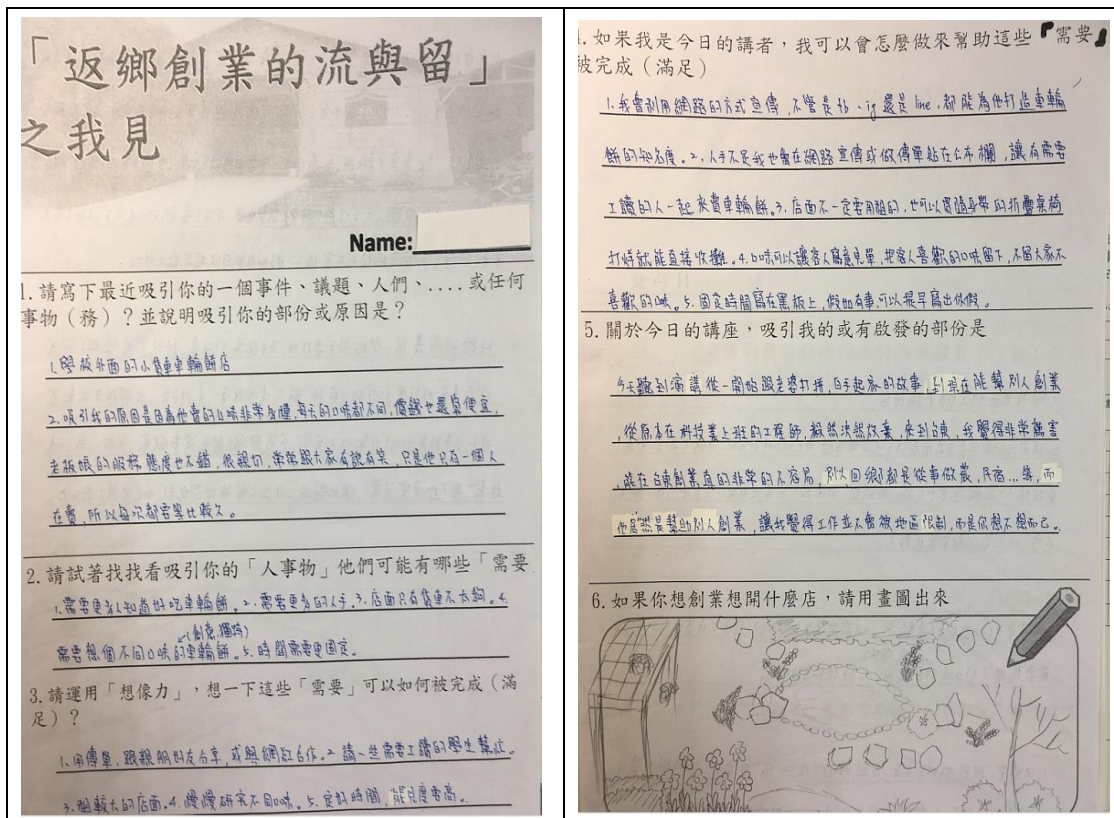 「返鄉創業的流與留」
之我見
Name:
1. 請寫下最近吸引你的一個事件、議題、人們、....或任何
事物(務)?並說明吸引你的部份或原因是?
1.學校外面的小貨車車輪餅店
2.吸引我的原因是因為他賣的口味非常多種,每天的口味都不同,價錢也最便宜,
老板娘的服務態度也不錯,很親切,常常跟大家有說有笑,只是他只有一個人
在賣,所以每次都需等比較久。
2.請試著找找看吸引你的「人事物」他們可能有哪些「需要
1.需要更多人知道好吃車輪餅。2.需要更多的人手。3.店面只有貨車不太夠。4.
(創意.獨特)
需要想個不同口味的車輪餅。5.時間需要更固定。
3.請運用「想像力」,想一下這些「需要」可以如何被完成(滿
足)?
1.用傳單,跟親朋好友分享,或與網紅合作。2.請一些需要工讀的學生幫忙。
3.租較大的店面。4.慢慢研究不同口味。5.定好時間,能見度要高。
4.如果我是今日的講者,我可以會怎麼做來幫助這些『需要』
被完成(滿足)
1.我會利用網路的方式宣傳,不管是fb、ig還是line,都能為他打造車輪
餅的知名度。2.人手不足我也會在網路宣傳或做傳單貼在公布欄,讓有需要
工讀的人一起來賣車輪餅。3.店面不一定要用租的,也可以買隨身帶的折疊桌椅
打烊就能直接收攤。4.口味可以讓客人寫意見單,把客人喜歡的口味留下,不留大家不
喜歡的口味。5.固定時間寫在黑板上,假如有事,可以提早寫出休假。
5.關於今日的講座,吸引我的或有啟發的部份是
今天聽到演講從一開始跟老婆打拼,白手起家的故事,到現在能幫別人創業
,從原本在科技業上班的工程師,毅然決然放棄,來到台東,我覺得非常厲害
,能在台東創業真的非常的不容易,別人回鄉都是從事做農,民宿...等,而
他居然是幫助別人創業,讓我覺得工作並不會被地區限制,而是你想不想而已。
6.如果你想創業想開什麼店,請用畫圖出來